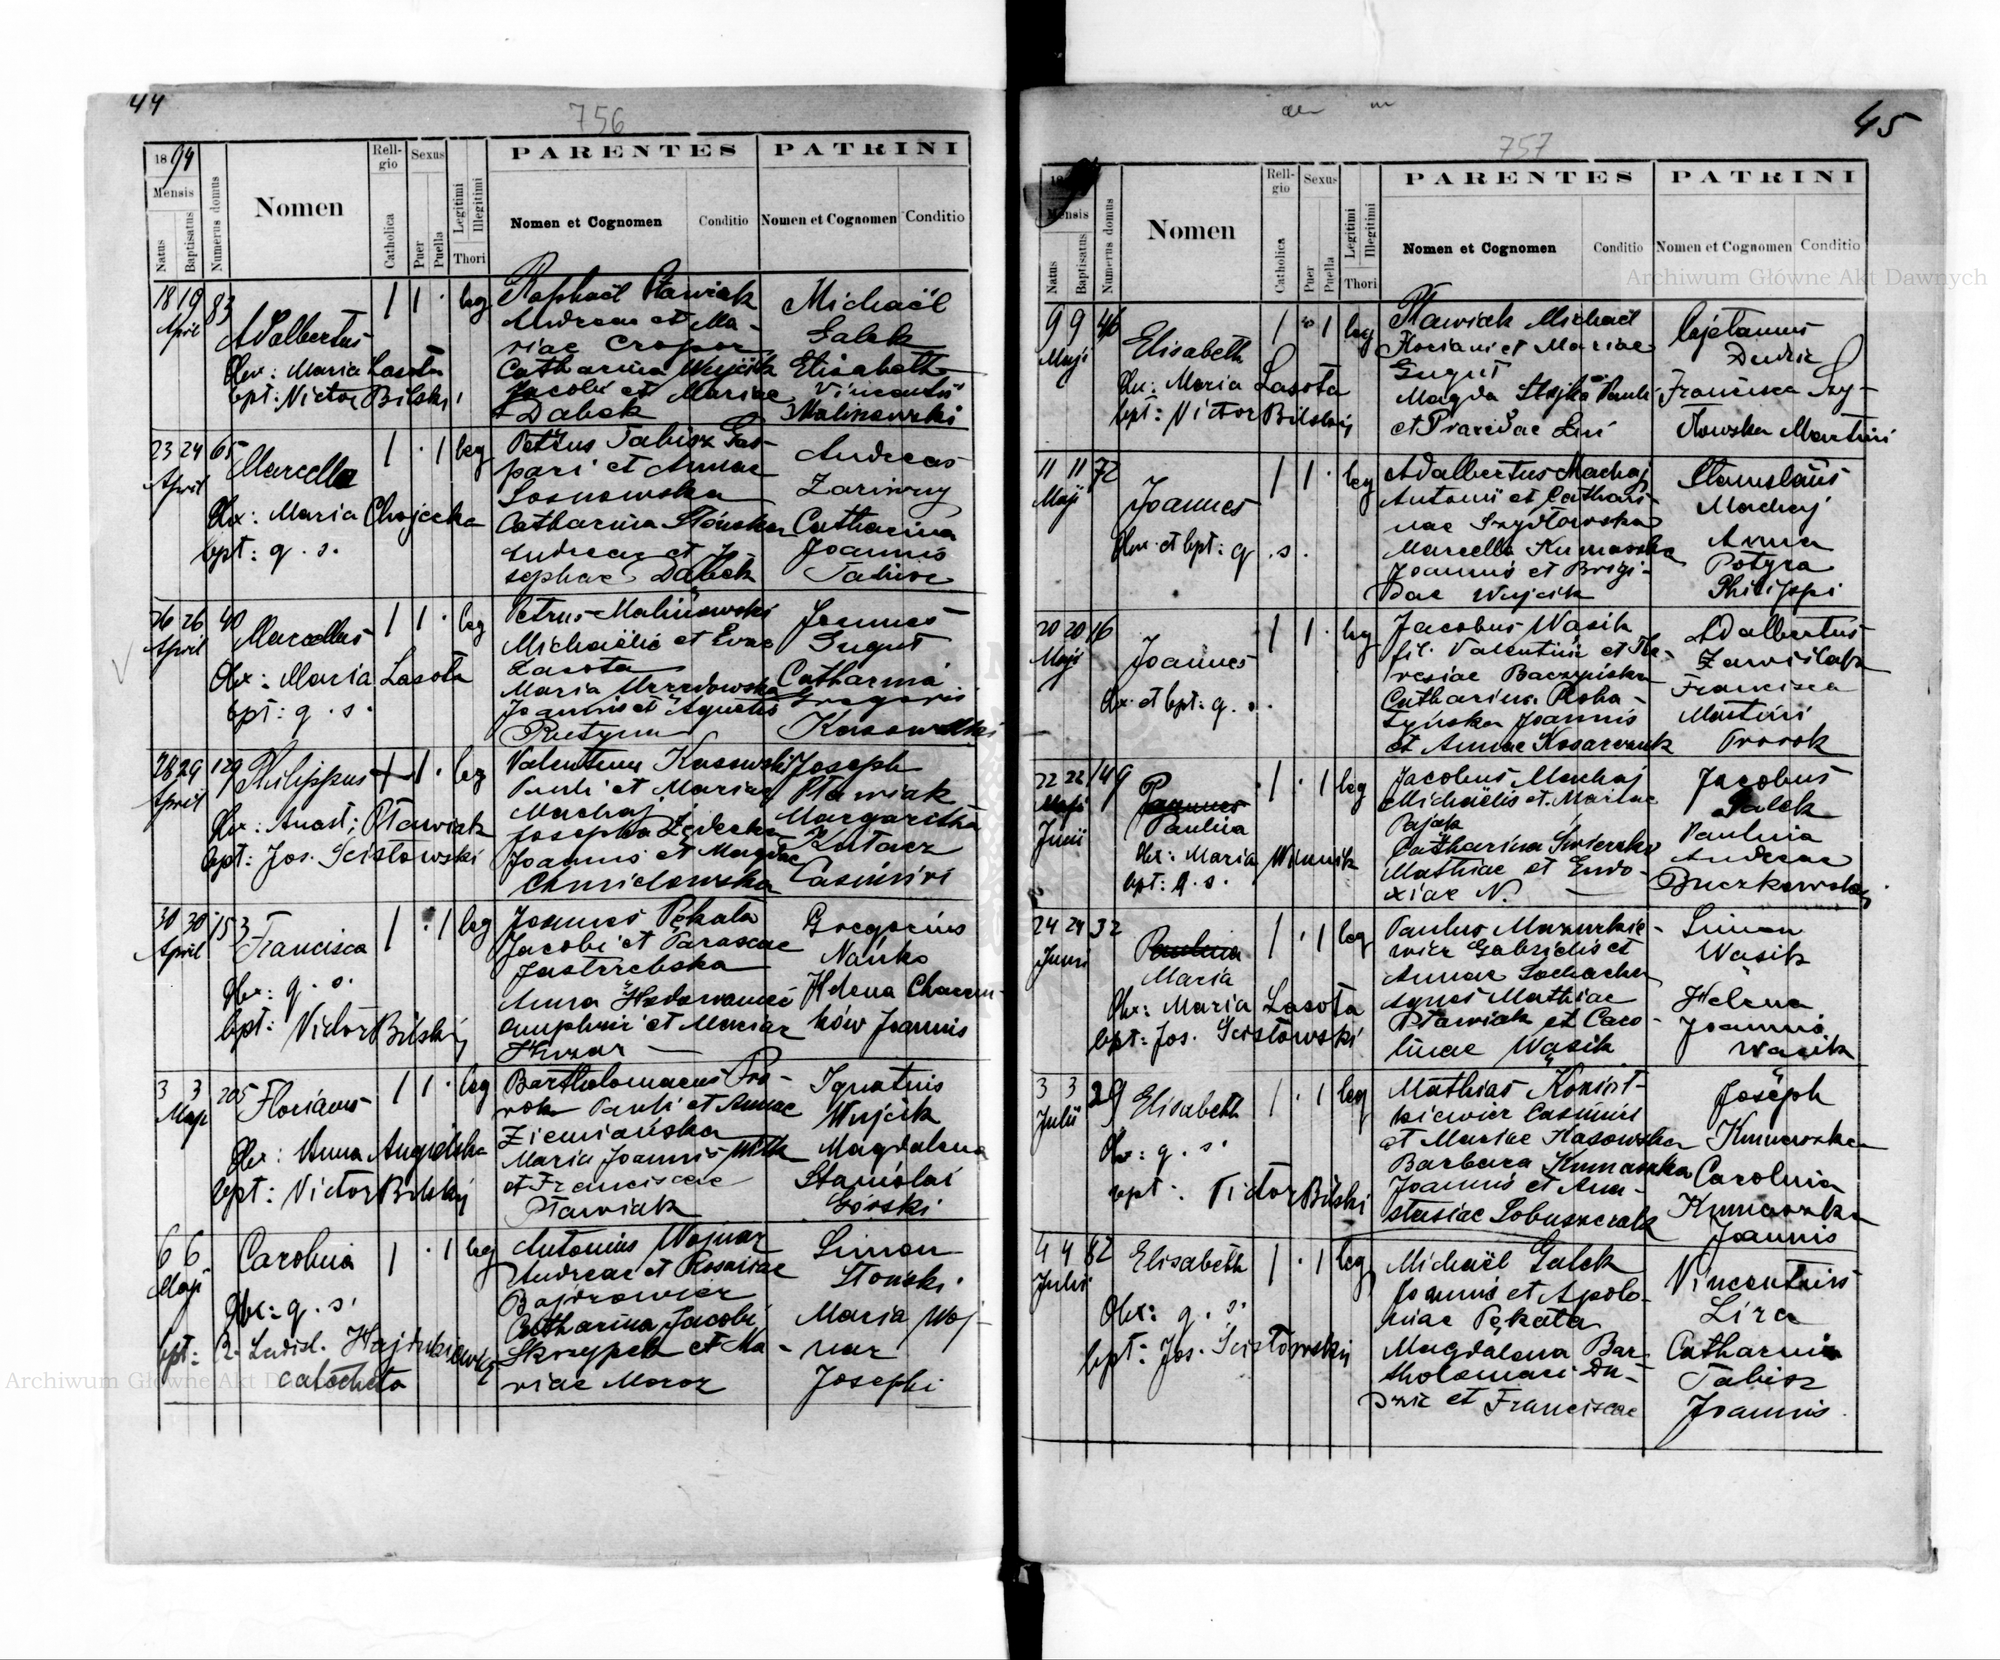 44
756
1894
Mensis
Natus
Baptisatus
Numerus domus
Nomen
Religio
Catholica
Sexus
Puer
Puella
Legitimi
Illegitimi
Thori
PARENTES
Nomen et Cognomen
Conditio
PATRINI
Nomen et Cognomen
Conditio
18 19 83
April
Adalbertus
Obx: Maria Lasota
bpt: Victor Bilski
1 1 · leg
Raphaël Pławiak
Andreae et Ma-
riae
Catharina Wujcik
Jacobi et Mariae
Dąbek
Michaël
Galek
Elisabeth
Vincentii
Malinowski
23 24 65
April
Marcella
Obx: Maria Chojecka
bpt: q. s.
1 · 1 leg
Petrus Tabisz Gas-
pari et Annae
Sosnowska
Catharina Słońska
Andreae et Jo-
sephae Dąbek
Andreas
Catharina
Joannis
26 26 40
April
Marcellus
Obx: Maria Lasota
bpt: q. s.
1 1 · leg
Petrus Malinowski
Michaëlis et Evae
Lasota
Maria
Joannis et Agnetis
Joannes
Gugut
Catharina
Gregorii
Kasowski
28 29 129
April
Philippus
Obx: Anast; Pławiak
bpt: Jos. Scisłowski
1 1 · leg
Valentinus Kasowski
Pauli et Mariae
Machaj
Josepha
Joannis et Magdae
Chmielowska
Joseph
Pławiak
Margaritha
Casimiri
30 30 153
April
Francisca
Obx: q. s.
bpt: Victor Bilskij
1 · 1 leg
Joannes Pękala
Jacobi et Parascae
Jastrzebska
Anna
et Mariae
Gregorius
Nańko
Helena
Joannis
3 3 205
Maji
Florianus
Obx: Anna
bpt: Victor Bilskij
1 1 · leg
Bartholomaeus Pro-
rok Pauli et Annae
Ziemiańska
Maria Joannis Wilk
et Franciscae
Pławiak
Ignatius
Wujcik
Magdalena
Stanislai
Górski
6 6
Maji
Carolina
Obx: q. s.
bpt: R. Ladisl. Hajdukiewicz
catecheta
1 · 1 leg
Antonius Wojnar
Andreae et Rosaliae
Bajdrowicz
Catharina Jacobi
Skrzypek et Ma-
riae Moroz
Simon
Słoński
Maria Woj-
nar
Josephi
45
757
18
Mensis
Natus
Baptisatus
Numerus domus
Nomen
Religio
Catholica
Sexus
Puer
Puella
Legitimi
Illegitimi
Thori
PARENTES
Nomen et Cognomen
Conditio
PATRINI
Nomen et Cognomen
Conditio
Archiwum Główne Akt Dawnych
9 9 46
Maji
Elisabeth
Obx: Maria Lasota
bpt: Victor Bilskij
1 · 1 leg
Pławiak Michaël
Floriani et Mariae
Gugut
Magda Pauli
et Praxedae
Cajetanus
Dudzic
Francisca Szy-
dłowska Martini
11 11 72
Maji
Joannes
Obx. et bpt: q. s.
1 1 · leg
Adalbertus Machaj
Antonii et Cathari-
nae Szydłowska
Marcella Kumowska
Joannis et Brigi-
dae Wujcik
Stanislaus
Machaj
Anna
Potyra
Philippi
20 20 16
Maji
Joannes
Obx. et bpt: q. s.
1 1 · leg
Jacobus Wąsik
fil. Valentini et The-
resiae Baczyńska
Catharina
Joannis
et Annae
Adalbertus
Francisca
Martini
Prorok
22 22 149
Maji
Junii
Joannes
Paulina
Obx: Maria Winnik
bpt: q. s.
1 · 1 leg
Jacobus Machaj
Michaëlis et Mariae
Pająk
Catharina
Mathiae et Eudo-
xiae N.
Jacobus
Galek
Paulina
Andreae
Buczkowska
24 24 32
Junii
Paulina
Maria
Obx: Maria Lasota
bpt: Jos. Scisłowski
1 · 1 leg
Paulus Mazurkie-
wicz Gabrielis et
Annae Sochacka
Agnes Mathiae
Pławiak et Caro-
linae Wąsik
Simon
Wąsik
Helena
Joannis
Wąsik
3 3 29
Julii
Elisabeth
Obx: q. s.
bpt: Victor Bilski
1 · 1 leg
Mathias
Casimiri
et Mariae Kasowska
Barbara Kumowska
Joannis et Ana-
stasiae Lobuszczak
Joseph
Kumowska
Carolina
Kumowska
Joannis
4 4 82
Julii
Elisabeth
Obx: q. s.
bpt: Jos. Scisłowskij
1 · 1 leg
Michaël Galek
Joannis et Apolo-
niae Pękala
Magdalena Bar-
tholomaei Du-
dzic et Franciscae
Vincentius
Lira
Catharina
Tabisz
Joannis
Archiwum Główne Akt Dawnych